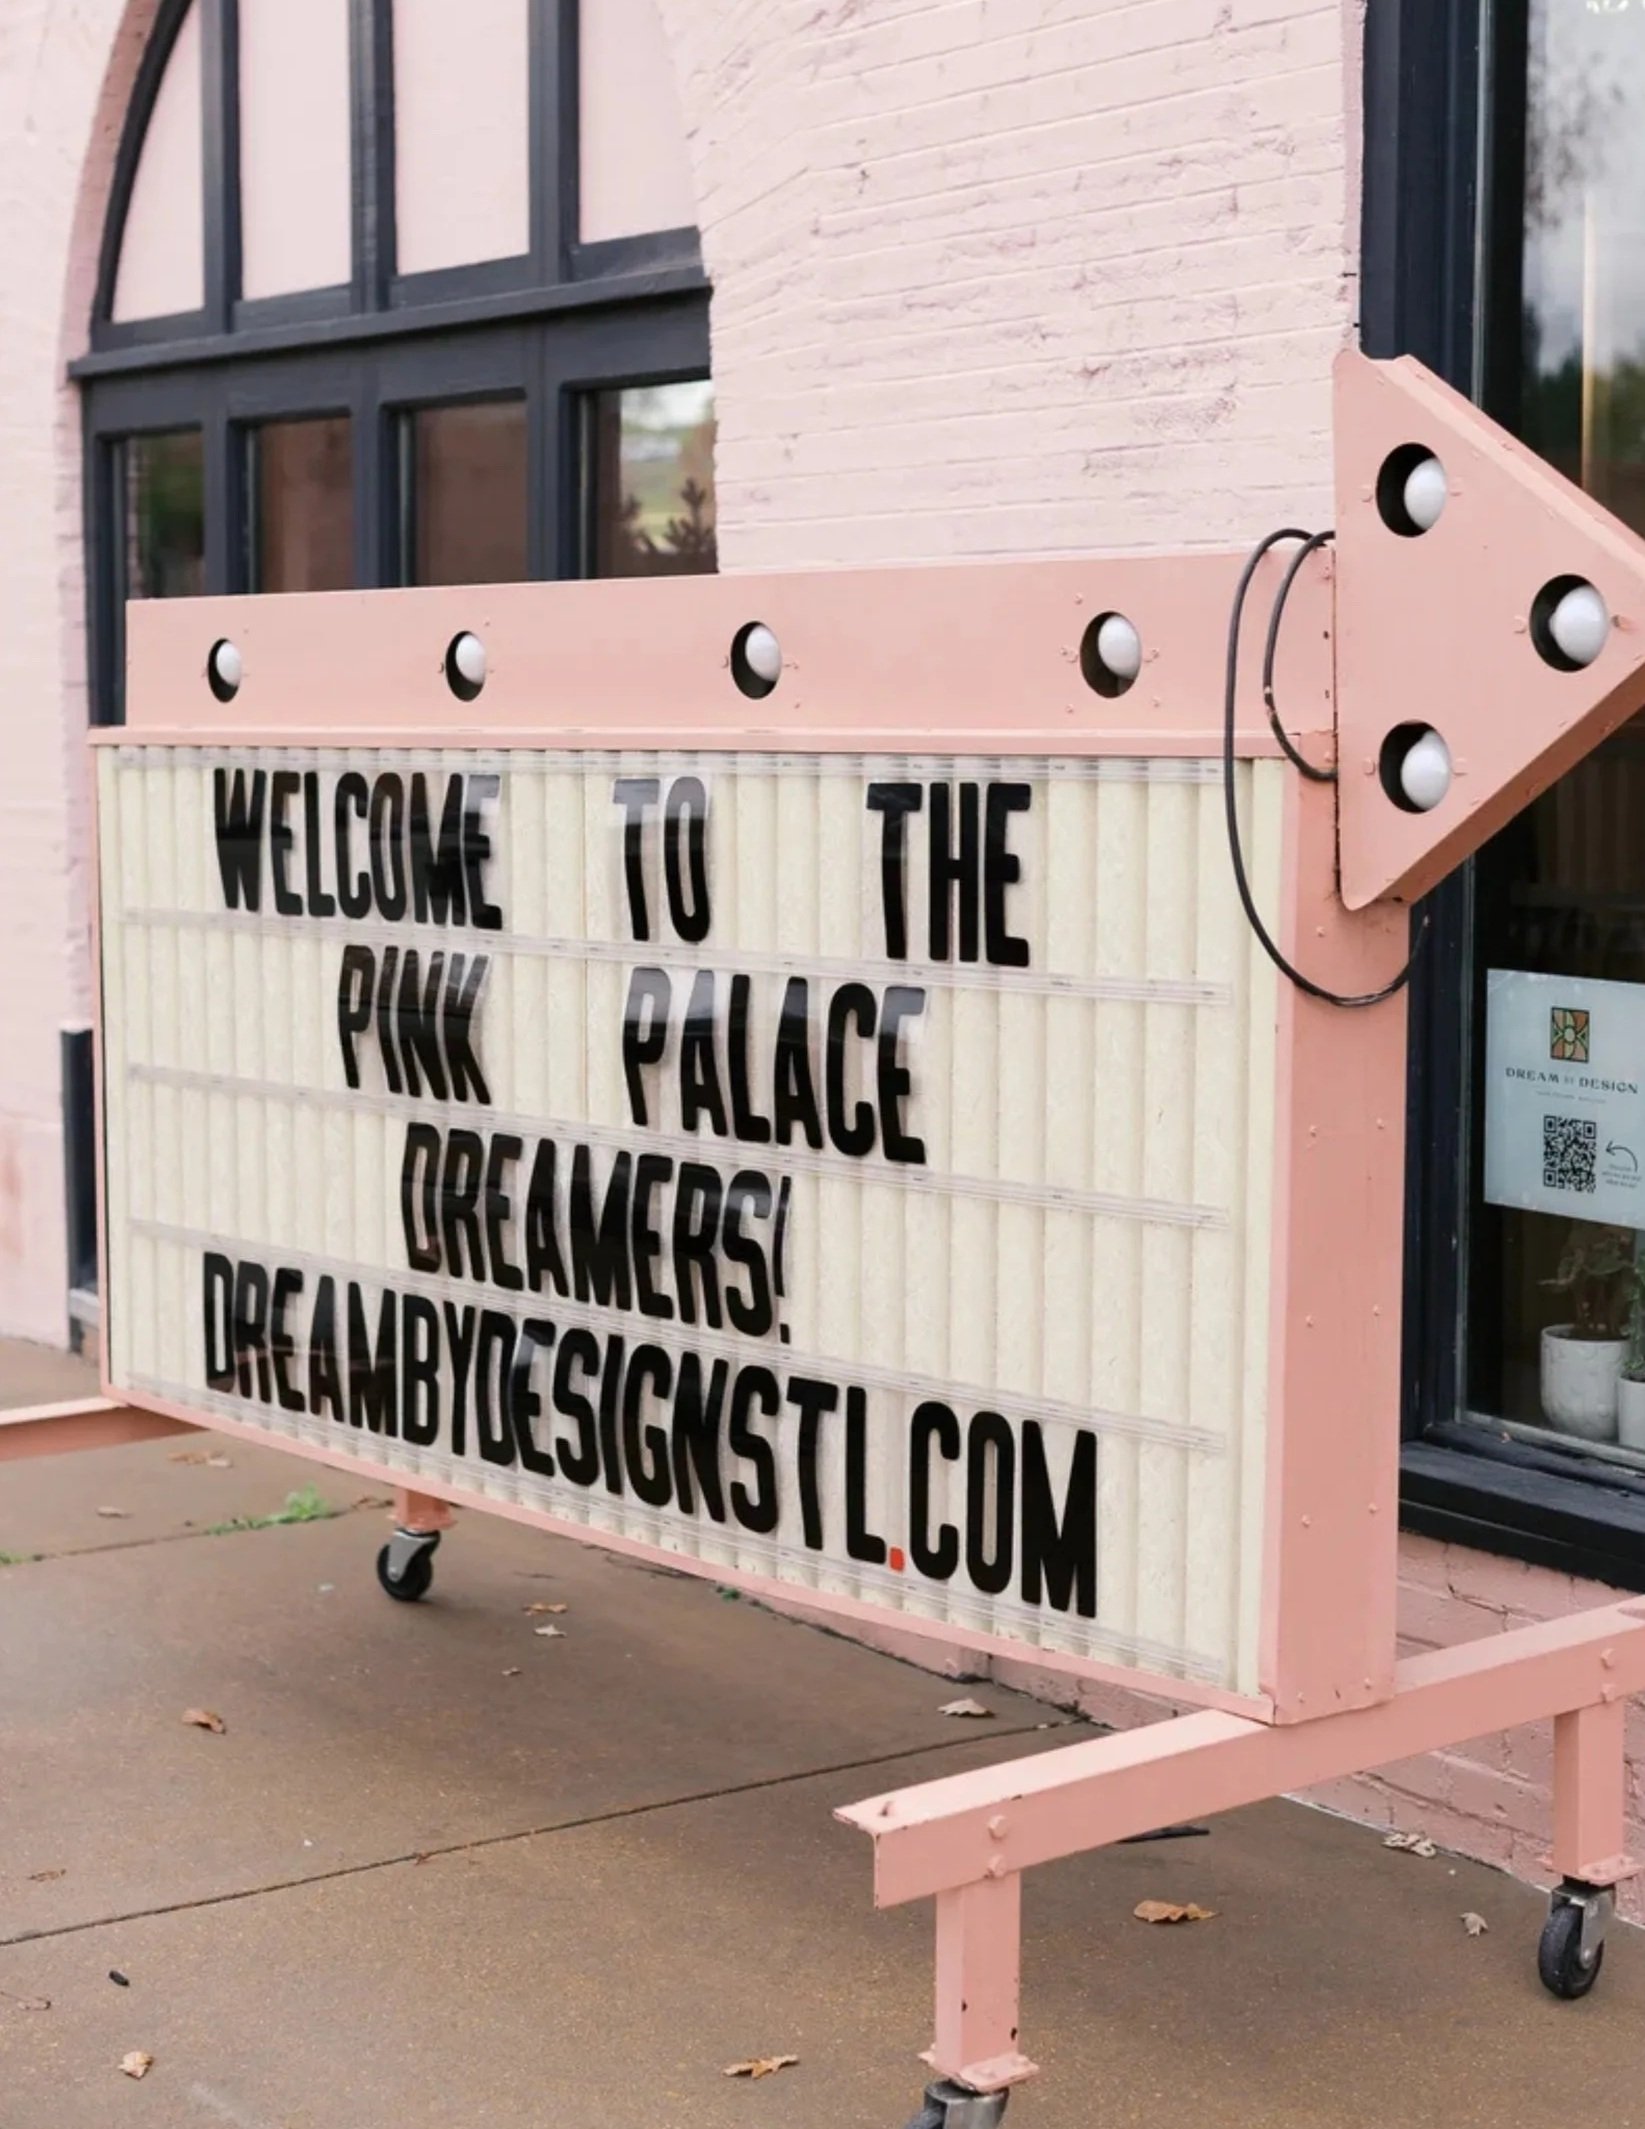 WELCOME TO THE
PINK PALACE
DREAMERS!
DREAMBYDESIGNSTL.COM
DREAM BY DESIGN